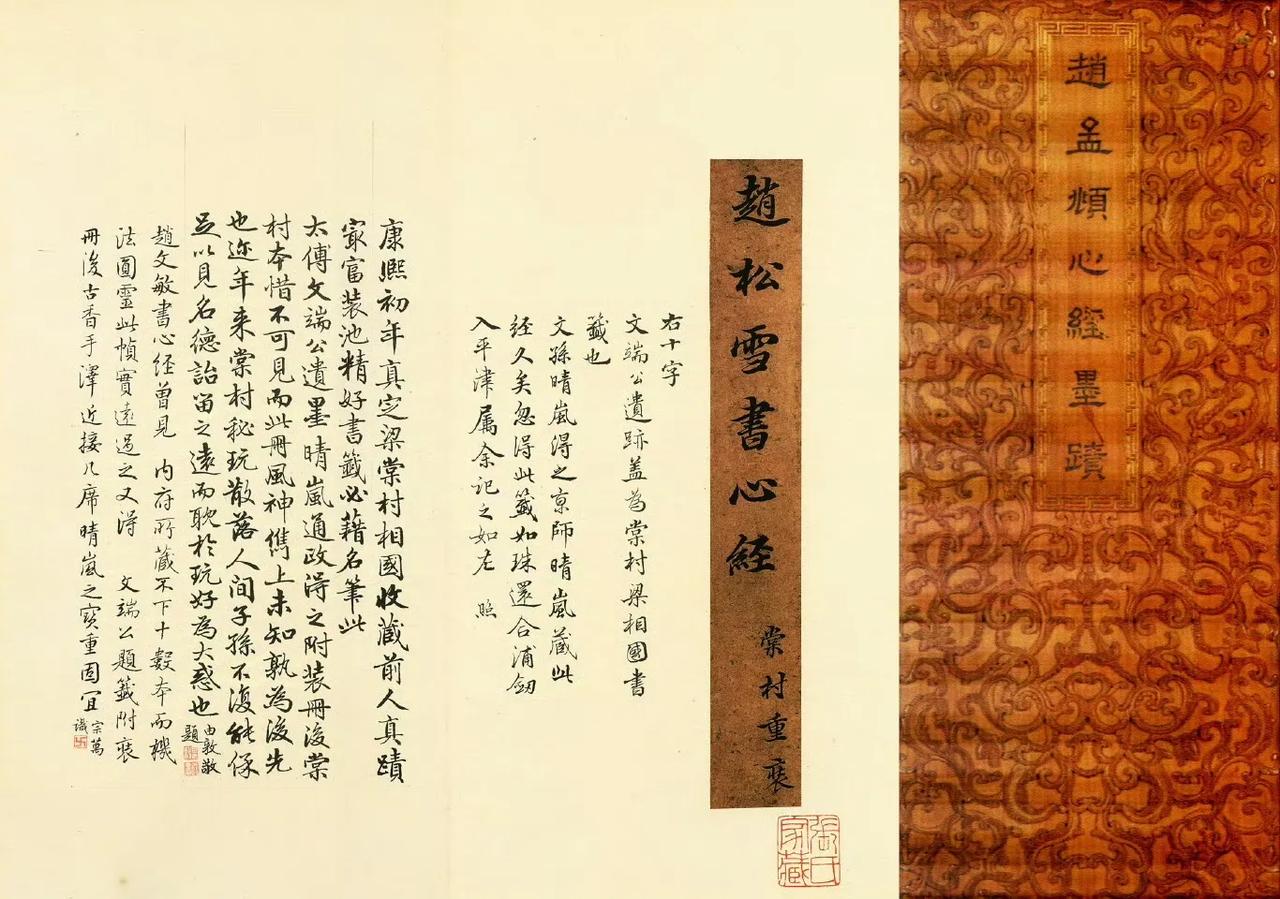 趙孟頫心經墨蹟
趙松雪書心経
棠村重裝
張氏
家藏
右十字
文端公遺跡蓋為棠村梁相國書
籤也
文孫晴嵐得之京師晴嵐蔵此
経久矣忽得此籤如珠還合浦劒
入平津属余記之如左 照
康熙初年真定梁棠村相國收蔵前人真蹟
冣富装池精好書籤必藉名筆此
太傅文端公遺墨晴嵐通政得之附装冊後棠
村本惜不可見而此冊風神儁上未知孰為後先
也迩年来棠村秘玩散落人间子孫不復能保
足以見名德詒留之遠而耽於玩好為大惑也
由敦敬
題
趙文敏書心経曽見 内府所蔵不下十數本而機
法圓靈此幀實遠過之又得 文端公題籤附裝
冊後古香手澤近接几席晴嵐之寶重固宜
宗萬
識